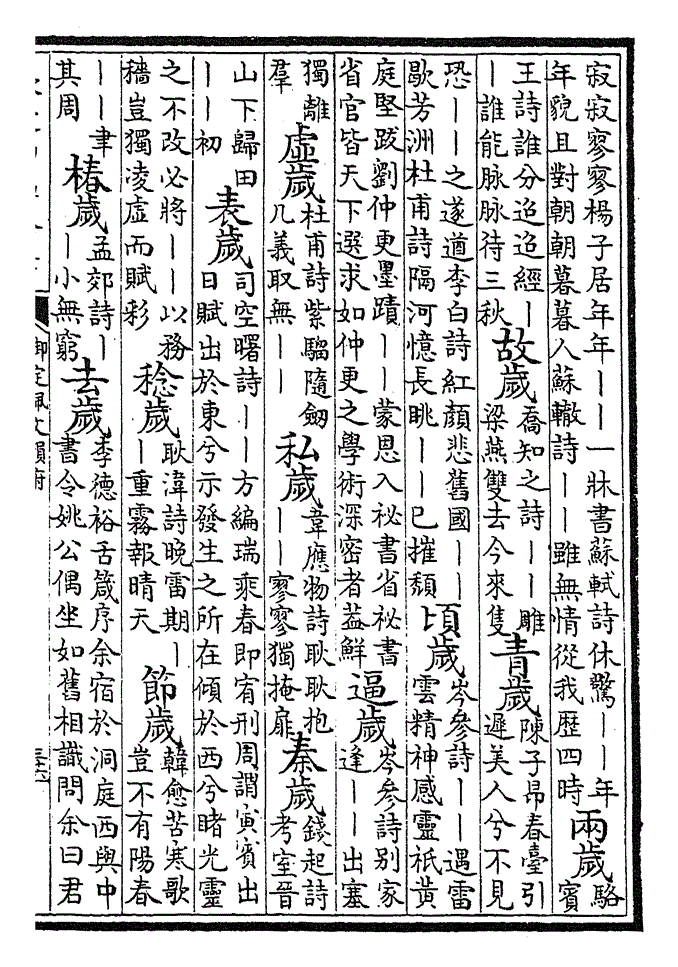 寂寂寥寥楊子居年年――一牀書蘇軾詩休驚――年
年貌且對朝朝暮暮人蘇轍詩――雖無情從我歷四時
兩歲
駱
賓
王詩誰分迢迢經―
―誰能脉脉待三秋
故歲
喬知之詩――雕
梁燕雙去今來隻
青歲
陳子昂春臺引
遲美人兮不見
恐――之遂遒李白詩紅顏悲舊國――
歇芳洲杜甫詩隔河憶長眺――已摧頹
頃歲
岑參詩――遇雷
雲精神感靈祇黃
庭堅跋劉仲更墨蹟――蒙恩入祕書省祕書
省官皆天下選求如仲更之學術深密者葢鮮
逼歲
岑參詩別家
逢――出塞
獨離
羣
虛歲
杜甫詩紫騮隨劒
几義取無――
私歲
韋應物詩耿耿抱
――寥寥獨掩扉
秦歲
錢起詩
考室晉
山下歸田
――初
表歲
司空曙詩――方編瑞乘春即宥刑周謂寅賓出
日賦出於東兮示發生之所在傾於西兮睹光靈
之不改必將――以務
穡豈獨凌虛而賦彩
稔歲
耿湋詩晚雷期―
―重霧報晴天
節歲
韓愈苦寒歌
豈不有陽春
――聿
其周
椿歲
孟郊詩―
―小無窮
去歲
李德裕舌箴序余宿於洞庭西與中
書令姚公偶坐如舊相識問余曰君
御定佩文韻府